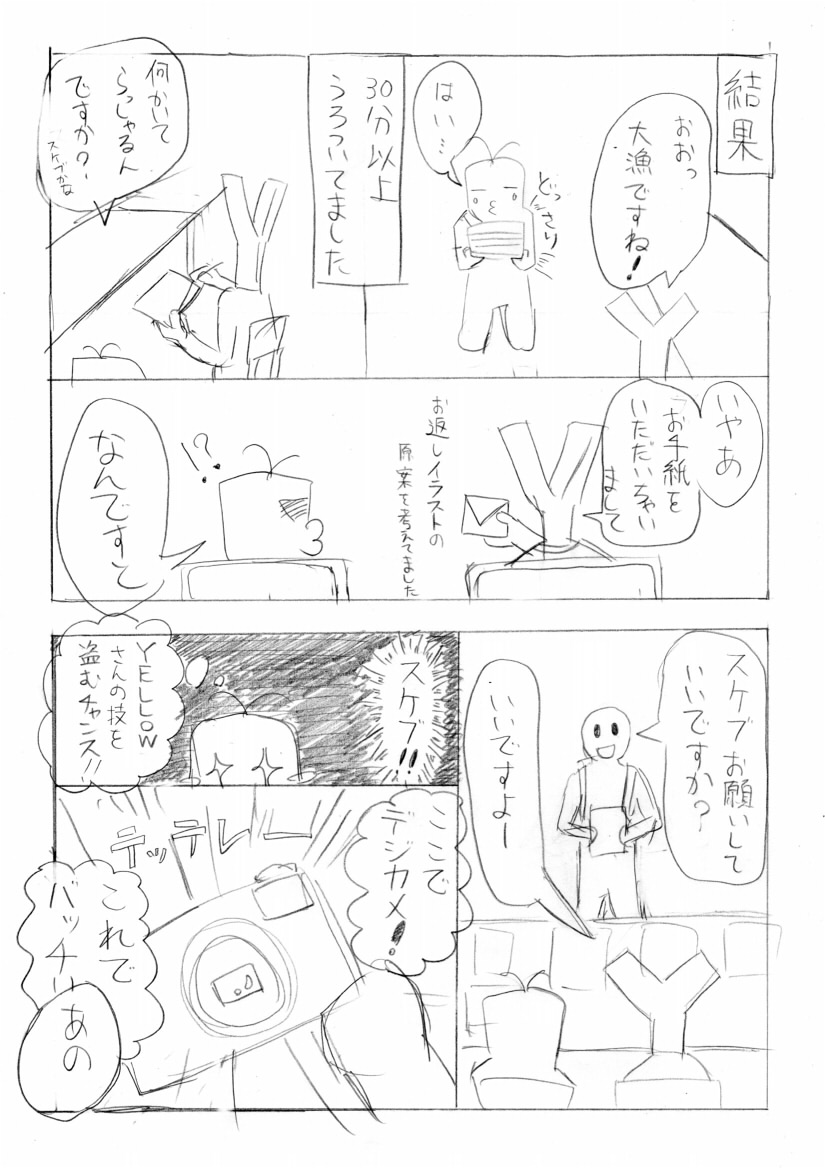 結果
おおっ
大漁ですね!
どっさり
はい…
30分以上
うろついてました
何かいて
らっしゃる人
ですか?
スケブかな
いやあ
お手紙を
いただいちゃい
まして
お返しイラストの
原案を考えてました
!?
なんですと
スケブお願いして
いいですか?
いいですよー
スケブ!!
YELLOW
さんの技を
盗むチャンス!!
ここで
デジカメ!
テッテレー
これで
バッチリ
あの